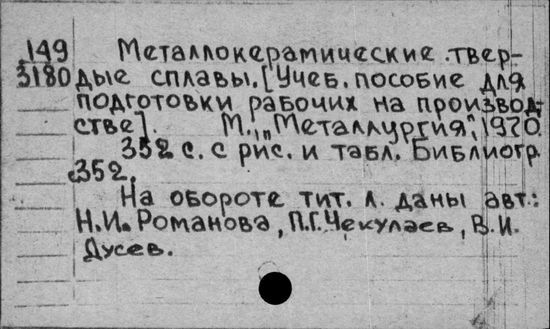 149 Металлокерамические твер-
3180 дые сплавы. [Учеб. пособие для
подготовки рабочих на производ-
стве]. М., "Металлургия", 1970.
352 с. с рис. и табл. Библиогр.
с. 352.
На обороте тит. л. даны авт.:
Н.И. Романова, П.Г. Чекулаев, В.И.
Дусев.